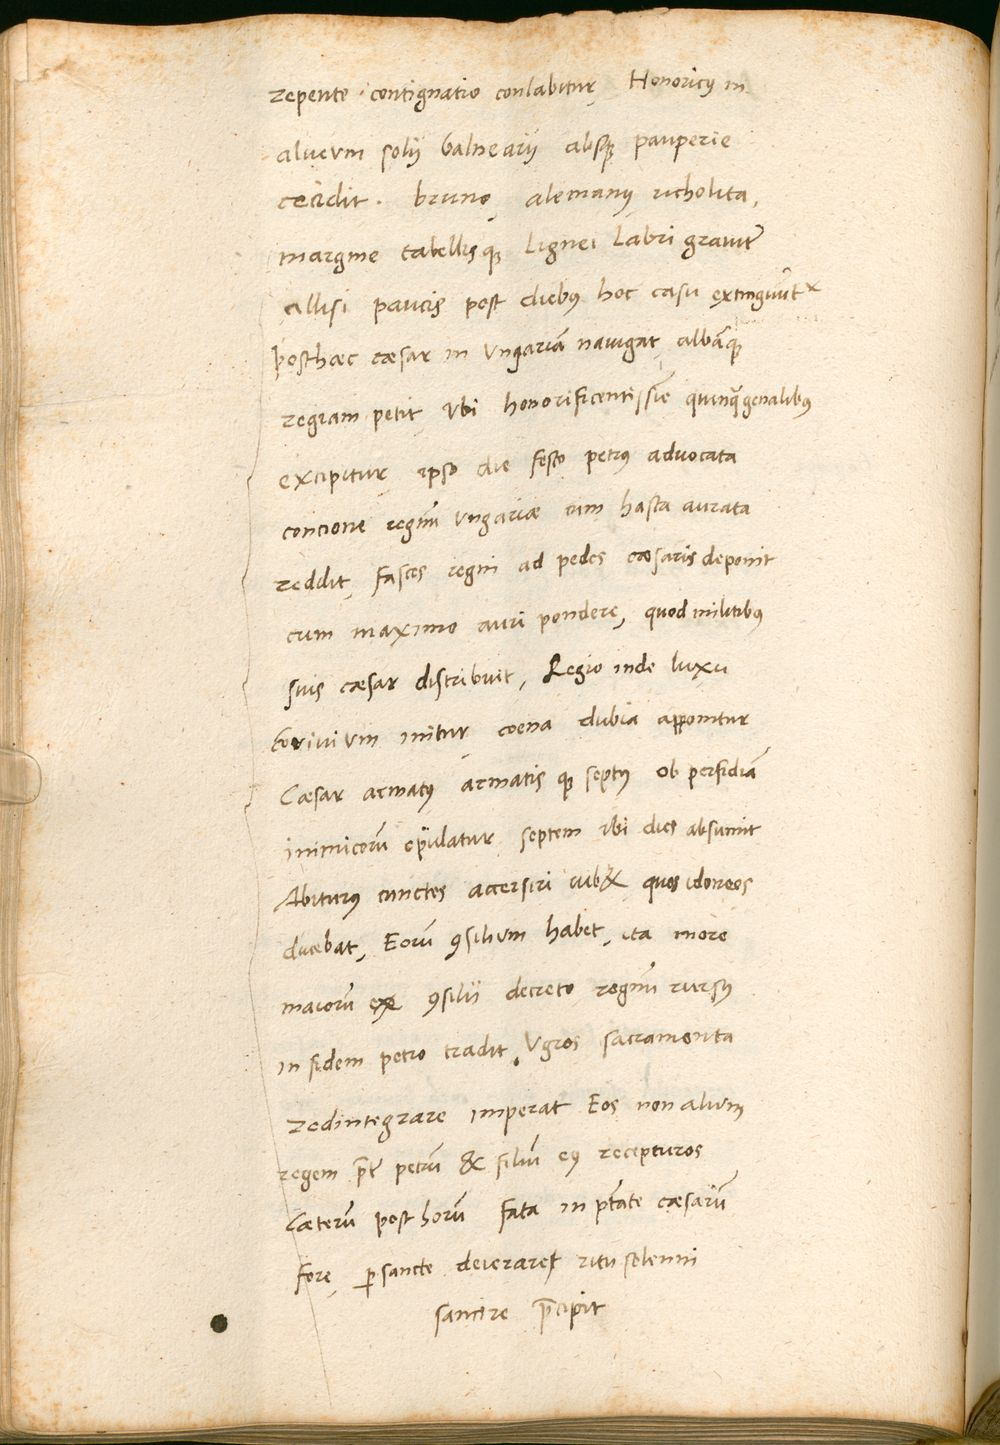 repente contignatio conlabitur, Honoricꝰ in
alueum solij balnearij absqꝫ pauperie
cecidit. bruno, alemanꝰ richolita,
margine tabellisqꝫ Lignei Labri grauit̃
allisi paucis post diebꝰ hoc casu extinguũt᷒
posthaec cæsar in Vngariã nauigat, albãqꝫ
regiam petit Vbi honorificentissĩe qũnq̃genalibꝰ
excipitur ipso die festo petrꝰ aduocata
concione regnũ Vngariæ cum hasta aurata
reddit, fasces regni ad pedes cæsaris deponit
cum maximo auri pondere, quod militibꝰ
suis cæsar distribuit, Regio inde luxu
conuiuium initur coena dubia apponitur
Cæsar armatꝰ armatisqꝫ septꝰ ob perfidiã
inimicorũ epulatur septem ibi dies absumit
Abiturꝰ cunctes accersiri iub& quos idoneos
ducebat, Eorũ ꝯsilium habet, ita more
maiorũ ex ꝯsilij decreto regnũ rursꝰ
in fidem petro tradit, Vgros sacramenta
redintegrare imperat Eos non alium
regem p̃t̃ petrũ & filiũ eꝰ recepturos
Cæterũ post horũ fata in ptãte cæsarũ
fore, ꝑsancte deierare& ritu solenni
sancire p̃cipit